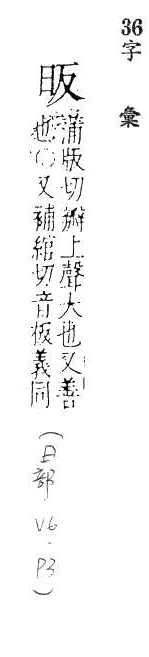 36
字彙
昄
蒲版切瓣上聲大也又善
也○又補綰切音板義同
(日部 V6・P3)